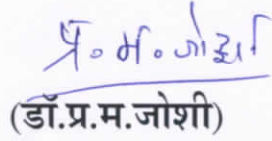 प्र. म. जोशी
(डॉ.प्र.म.जोशी)